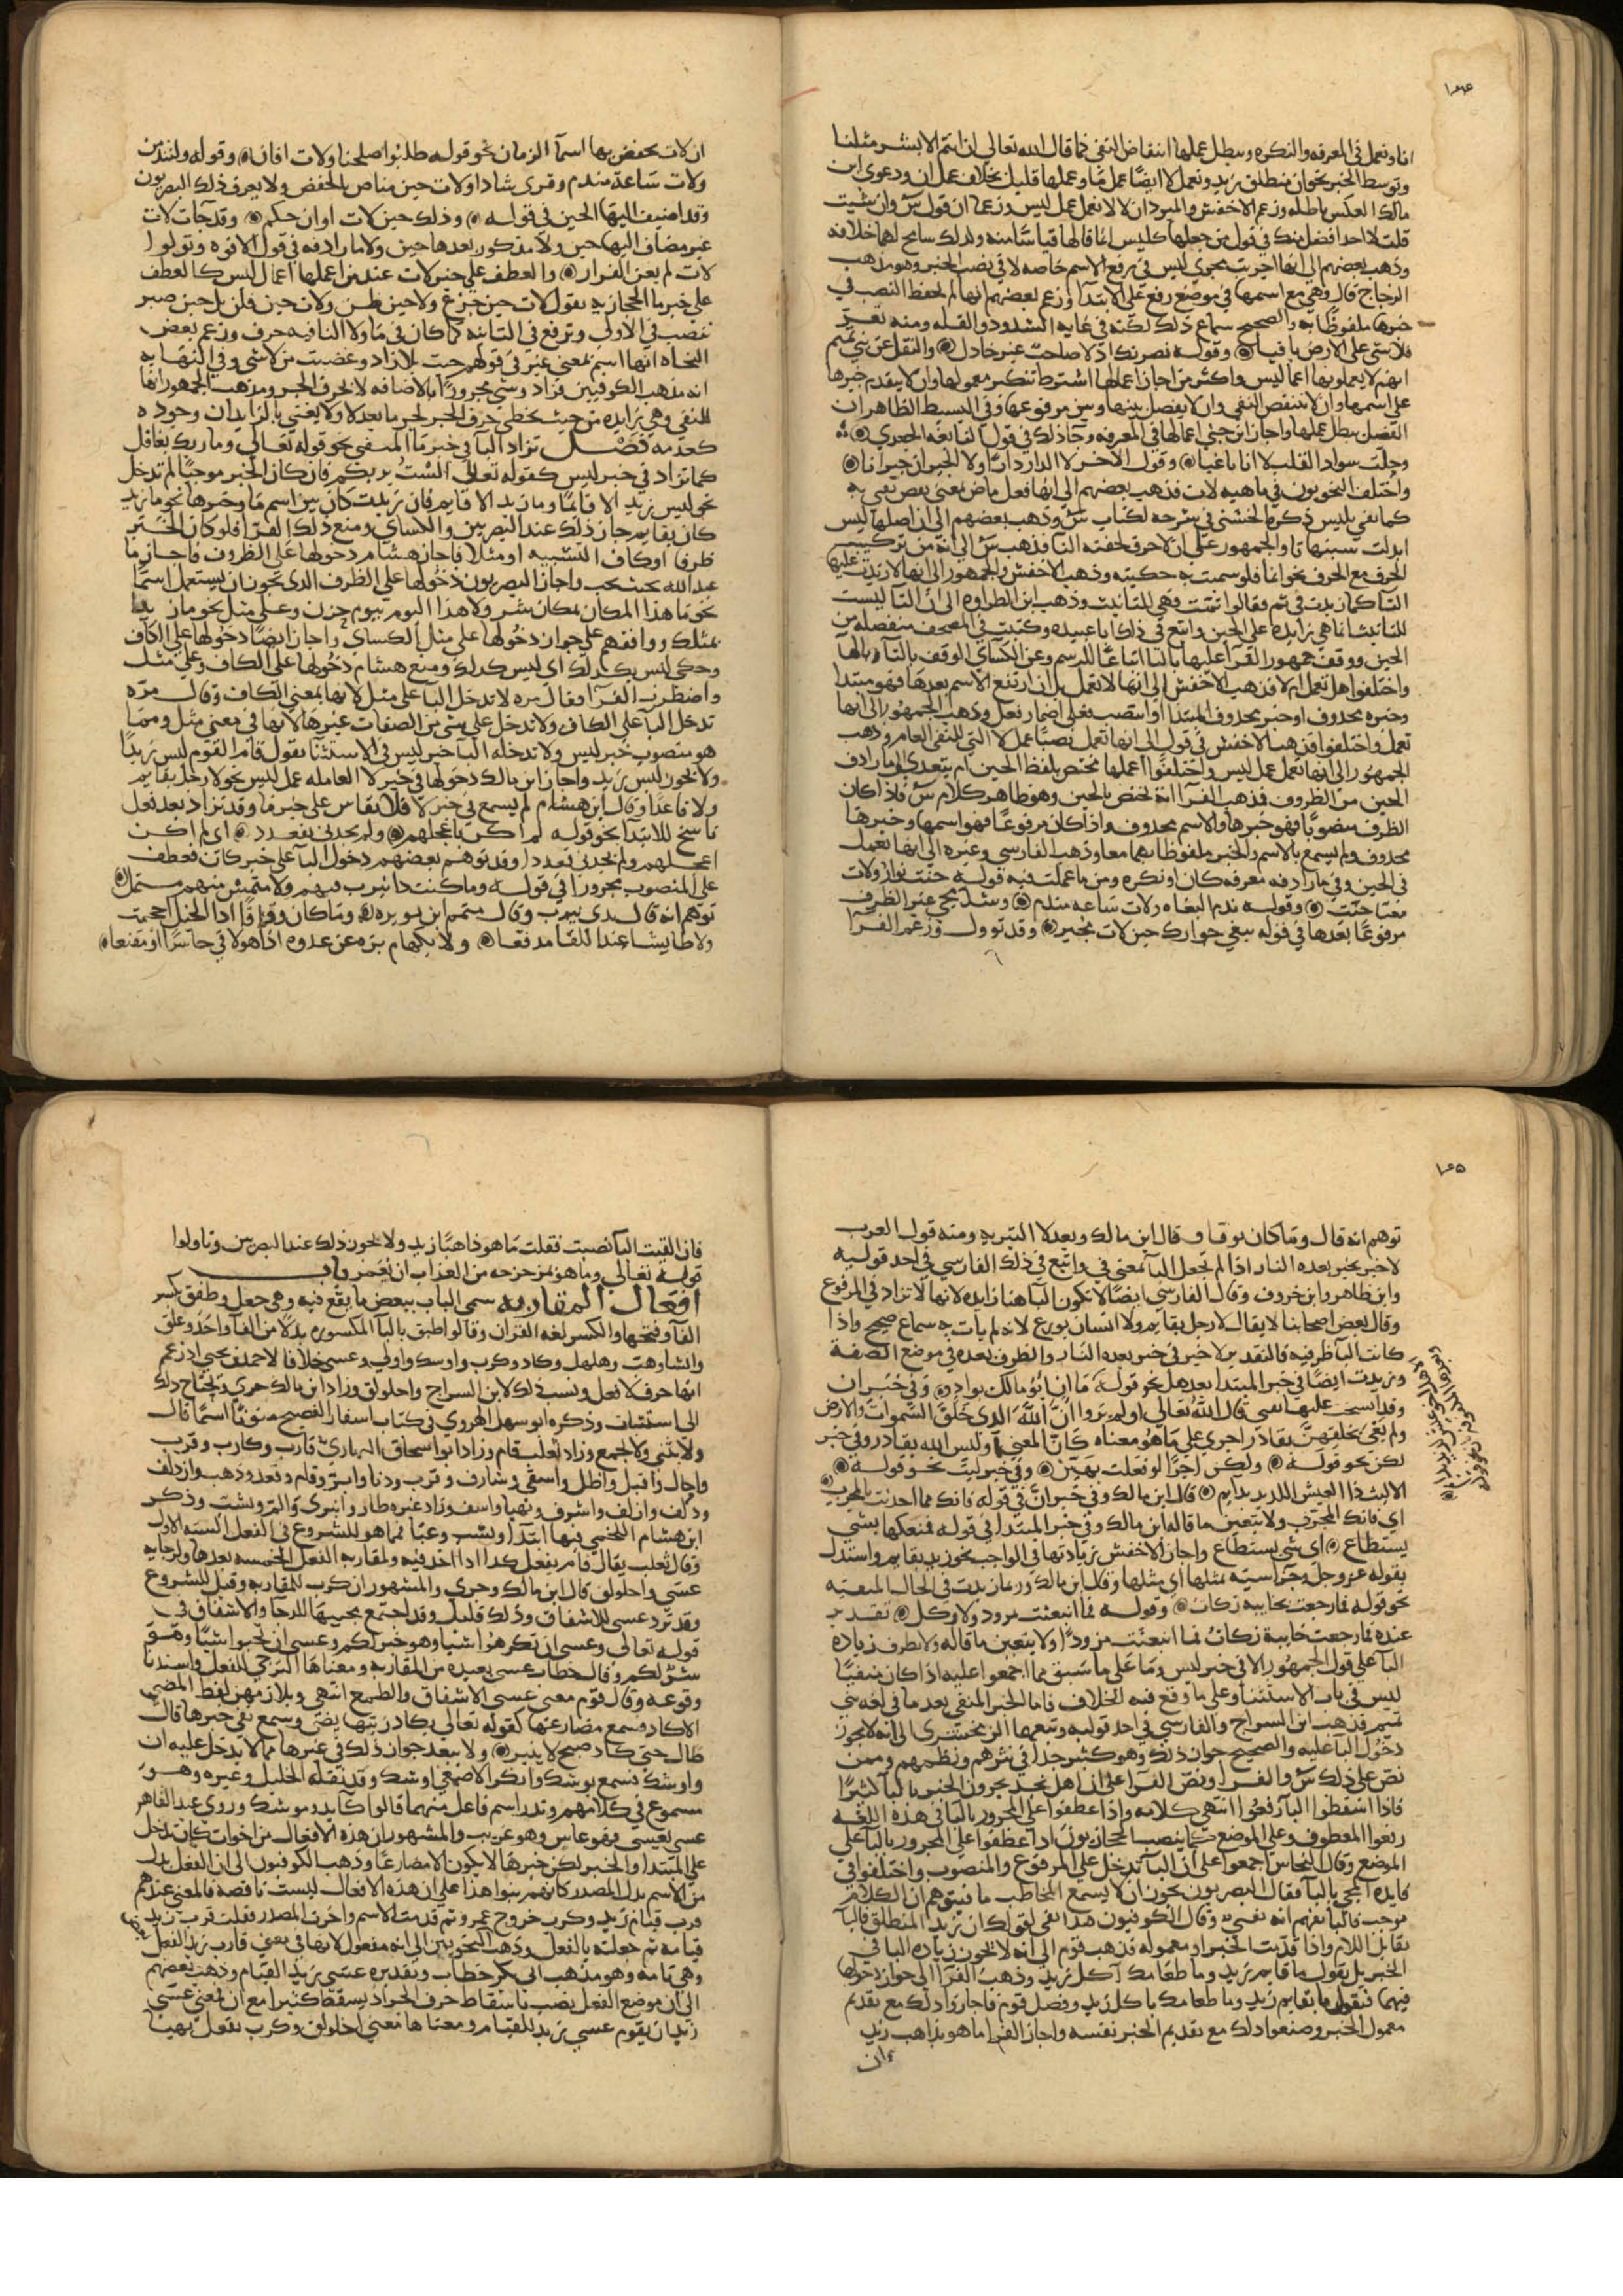 انها وتعمل في المعرفه والنكره ويبطل عملها انتقاض النفي كما قال الله تعالى ان انتم الا بشر مثلنا
وتوسط الخبر نحو ان منطلق زيد وتعمل لا ايضا عمل ما وعملها قليل بخلاف عمل ان ودعوى ابن
مالك العكس باطله وزعم الاخفش والمبرد ان لا لا تعمل عمل ليس وزعما ان قول س وان شيت
قلت لا احد افضل منك في قول من جعلها كليس انما قالها قياسا منه ولذلك سايح لهما خلافه
وذهب بعضهم الى انها اجريت مجرى ليس في رفع الاسم خاصه لا في نصب الخبر وهو مذهب
الزجاج قال وهي مع اسمها في موضع رفع على الابتدا وزعم بعضهم انها لم يحفظ النصب في
خبرها ملفوظا به والصحيح سماع ذلك لكنه في غايه الشذوذ والقله ومنه تعز
فلا شي على الارض باقيا وقوله نصرتك اذ لا صاحب غير خاذل والنقل عن بني تميم
انهم لا يعملونها اعمال ليس واكثر من اجاز اعمالها اشترط تنكير معموليها وان لا يتقدم خبرها
على اسمها وان لا ينتقض النفي وان لا يفصل بينها وبين مرفوعها وفي البسيط الظاهر ان
الفصل يبطل عملها واجاز ابن جني اعمالها في المعرفه وجا ذلك في قول النابغه الجعدي
وحلت سواد القلب لا انا باغيا وقول الاخر لا الدار دارا ولا الجيران جيرانا
واختلف النحويون في ماهيه لات فذهب بعضهم الى انها فعل ماض بمعنى نقص نفي به
كما نفي بليس ذكره الخشني في شرحه لكتاب س وذهب بعضهم الى ان اصلها ليس
ابدلت سينها تا والجمهور على ان لا حرف لحقته التا فذهب س الى انه من تركيب
الحرف مع الحرف نحو انما فلو سميت به حكيته وذهب الاخفش والجمهور الى انها لا زيدت عليها
التا كما زيدت في ثم فقالوا ثمت وهي للتانيث وذهب ابن الطراوه الى ان التا ليست
للتانيث انما هي زايده على الحين واتبع في ذلك ابا عبيده وكتبت في المصحف منفصله من
الحين ووقف جمهور القرا عليها بالتا اتباعا للرسم وعن الكساي الوقف بالتا وبالها
واختلفوا هل تعمل ام لا فذهب الاخفش الى انها لا تعمل بل ان ارتفع الاسم بعدها فهو مبتدا
وخبره محذوف او خبر محذوف المبتدا او انتصب فعلى اضمار فعل وذهب الجمهور الى انها
تعمل واختلفوا فذهب الاخفش في قول الى انها تعمل نصبا عمل لا التي للنفي العام وذهب
الجمهور الى انها تعمل عمل ليس واختلفوا اعملها مختص بلفظ الحين ام يتعدى الى ما رادف
الحين من الظروف فذهب الفرا انه تختص بالحين وهو ظاهر كلام س فاذا كان
الظرف منصوبا فهو خبرها والاسم محذوف واذا كان مرفوعا فهو اسمها وخبرها
محذوف ولم يسمع بالاسم والخبر ملفوظا بهما معا وذهب الفارسي وغيره الى انها تعمل
في الحين وفي ما رادفه معرفه كان او نكره ومن ما عملت فيه قوله حنت نوار ولات
هنا حنت وقوله ندم البغاه ولات ساعه مندم وشذ مجي غير الظرف
مرفوعا بعدها في قوله يبغي جوارك حين لات مجير وقد توول وزعم الفرا
ان لات يخفض بها اسما الزمان نحو قوله طلبوا صلحنا ولات اوان وقوله ولتندمن
ولات ساعة مندم وقرى شاذا ولات حين مناص بالخفض ولا يعرف ذلك البصريون
وقد اضيف اليها الحين في قوله وذلك حين لات اوان حكم وقد جات لات
غير مضاف اليها حين ولا مذكور بعدها حين ولا ما رادفه في قول الافوه وتولوا
لات لم يغن الفرار والعطف على خبر لات عند من اعملها اعمال ليس كالعطف
على خبر ما الحجازيه تقول لات حين جزع ولا حين طيش ولات حين قلق بل حين صبر
تنصب في الاولى وترفع في الثانيه كما كان في ما ولا النافيه حرف وزعم بعض
النحاه انها اسم بمعنى غير في قولهم جيت بلا زاد وغضبت من لا شي وفي النهايه
انه مذهب الكوفيين فزاد وشي مجرورا بالاضافه لا بحرف الجر ومذهب الجمهور انها
للنفي وهي زايده من حيث تخطي حرف الجر لجر ما بعد لا ولا يعني بالزايد ان وجوده
كعدمه فصل تزاد البا في خبر ما المنفي نحو قوله تعالى وما ربك بغافل
كما تزاد في خبر ليس كقوله تعالى الست بربكم فان كان الخبر موجبا لم تدخل
نحو ليس زيد الا قايما وما زيد الا قايم فان زيدت كان بين اسم ما وخبرها نحو ما زيد
كان بقايم جاز ذلك عند البصريين والكساي ومنع ذلك الفرا فلو كان الخبر
ظرفا او كاف التشبيه او مثلا فاجاز هشام دخولها على الظروف فاجاز ما
عبد الله بحيث يحب واجاز البصريون دخولها على الظرف الذي يجوز ان يستعمل اسما
نحو ما هذا المكان بمكان شر ولا هذا اليوم بيوم حزن وعلى مثل نحو ما زيد
بمثلك ووافقهم على جواز دخولها على مثل الكساي واجاز ايضا دخولها على الكاف
وحكى ليس بكذلك اي ليس كذلك ومنع هشام دخولها على الكاف وعلى مثل
واضطرب الفرا فقال مره لا تدخل البا على مثل لانها بمعنى الكاف وقال مره
تدخل البا على الكاف ولا تدخل على شي من الصفات غيرها لانها في معنى مثل ومما
هو منصوب خبر ليس ولا تدخله البا خبر ليس في الاستثنا تقول قام القوم ليس زيدا
ولا يجوز ليس بزيد واجاز ابن مالك دخولها في خبر لا العامله عمل ليس نحو لا رجل بقايم
ولا قاعدا وقال ابن هشام لم يسمع في خبر لا فلا يقاس على خبر ما وقد تزاد بعد فعل
ناسخ للابتدا نحو قوله لم اكن باعجلهم ولم يجدني بقعدد اي لم اكن
اعجلهم ولم يجدني قعددا وقد توهم بعضهم دخول البا على خبر كان فعطف
على المنصوب مجرورا في قوله وما كنت ذا نيرب فيهم ولا منمش منهم منمل
توهم انه قال بذي نيرب وقال متمم ابن نويره وما كان وقافا اذا الخيل احجمت
ولا طايشا عند اللقا مدفعا ولا بكهام بزه عن عدوه اذا هو لاقى حاسرا او مقنعا
توهم انه قال وما كان بوقاف قال ابن مالك وبعد لا التبريه ومنه قول العرب
لا خير بخير بعده النار اذا لم تجعل البا بمعنى في واتبع في ذلك الفارسي في احد قوليه
وابن طاهر وابن خروف وقال الفارسي ايضا لا تكون البا هنا زايده لانها لا تزاد في المرفوع
وقال بعض اصحابنا لا يقال لا رجل بقايم ولا انسان بورع لانه لم يات به سماع صحيح واذا
كانت البا ظرفيه فالتقدير لا خير في خير بعده النار والظرف بعده في موضع الصفة
وزيدت ايضا في خبر المبتدا بعد هل نحو قوله
وقد انسحب عليها نفي قال الله تعالى اولم يروا ان الله الذي خلق السموات والارض
ولم يعي بخلقهن بقادر اجري على ما هو معناه كان المعنى اوليس الله بقادر وفي خبر
لكن نحو قوله ولكن اجرا لو فعلت بهين وفي خبر ليت نحو قوله
الا ليت ذا العيش اللذيذ بدايم قال ابن مالك وفي خبر ان في قوله فانك مما احدثت بالمجرب
اي فانك المجرب ولا يتعين ما قاله ابن مالك وفي خبر المبتدا في قوله فمنعكها بشي
يستطاع اي شي يستطاع واجاز الاخفش زيادتها في الواجب نحو زيد بقايم واستدل
بقوله عز وجل وجزا سيئه بمثلها اي مثلها وقال ابن مالك وربما زيدت في الحال المنفيه
نحو قوله فما رجعت بخايبه ركاب وقوله فما انبعثت بمزود ولا وكل تقديره
عنده فما رجعت خايبة ركاب فما انبعثت مزودا ولا يتعين ما قاله ولا يطرد زياده
البا على قول الجمهور الا في خبر ليس وما على ما سبق مما اجمعوا عليه اذا كان منفيا
ليس في باب الاستثنا وعلى ما وقع فيه الخلاف فاما الخبر المنفي بعد ما في لغه بني
تميم فذهب ابن السراج والفارسي في احد قوليه وتبعهما الزمخشري الى انه لا يجوز
دخول البا عليه والصحيح جواز ذلك وهو كثير جدا في نثرهم ونظمهم وممن
نص على ذلك س والفرا ونص الفرا على ان اهل نجد يجرون الخبر بالبا كثيرا
فاذا اسقطوا البا رفعوا انتهى كلامه واذا عطفوا على المجرور بالبا في هذه اللغه
رفعوا المعطوف وعلى الموضع كما ينصب الحجازيون اذا عطفوا على المجرور بالبا على
الموضع وقال النحاس اجمعوا على ان البا تدخل على المرفوع والمنصوب واختلفوا في
فايده المجي بالبا فقال البصريون يجوز ان لا يسمع المخاطب ما فيتوهم ان الكلام
موجب فالبا تفهم انه نفي وقال الكوفيون هذا نفي لقولك ان زيدا لمنطلق فالبا
تقابل اللام واذا قدمت الخبر او معموله فذهب قوم الى انه لا يجوز زياده البا في
الخبر بل تقول ما قايم زيد وما طعامك آكل زيد وذهب الفرا الى جواز دخولها
فيهما فتقول ما بقايم زيد وما طعامك باكل زيد وفصل قوم فاجازوا ذلك مع تقديم
معمول الخبر ومنعوا ذلك مع تقديم الخبر نفسه واجاز الفرا ما هو بذاهب زيد
فان
فان القيت البا نصبت فقلت ما هو ذاهبا زيد ولا يجوز ذلك عند البصريين وتاولوا
قوله تعالى وما هو بمزحزحه من العذاب ان يعمر باب
افعال المقاربه سمى الباب ببعض ما يقع فيه وهي جعل وطفق بكسر
الفا وفتحها والكسر لغه القران وقالوا طبق بالبا المكسوره بدلا من الفا واخذ وعلق
وانشا وهب وهلهل وكاد وكرب واوشك واولى وعسى خلافا لاحمد بن يحيى اذ زعم
انها حرف لا فعل ونسب ذلك لابن السراج واخلولق وزاد ابن مالك حرى ويحتاج ذلك
الى استثبات وذكره ابو سهل الهروي في كتاب اسفار الفصيح منونا اسما قال
ولا يثنى ولا يجمع وزاد ثعلب قام وزاد ابو اسحاق البهاري قارب وكارب وقرب
واحال واقبل واظل واشفى وشارف وقرب ودنا واثر وقام وقعد وذهب وازدلف
ودلف وازلف واشرف وتهيا واسف وزاد غيره طار وانبرى والم ونشب وذكر
ابن هشام اللخمي فيها ابتدا ونشب وعبا فما هو للشروع في الفعل الستة الاول
وقال ثعلب يقال قام يفعل كذا اذا اخذ فيه ولمقاربه الفعل الخمسه بعدها ولرجايه
عسى واخلولق قال ابن مالك وحرى والمشهور ان كرب للمقاربه وقيل للشروع
وقد ترد عسى للاشفاق وذلك قليل وقد اجتمع مجيها للرجا والاشفاق في
قوله تعالى وعسى ان تكرهوا شيا وهو خير لكم وعسى ان تحبوا شيا وهو
شر لكم وقال خطاب عسى بعيده من المقاربه ومعناها الترجي للفعل واستدنا
وقوعه وقال قوم معنى عسى الاشفاق والطمع انتهى ويلازمهن لفظ المضي
الا كاد فسمع مضارعها كقوله تعالى يكاد زيتها يضي وسمع نفي خبرها قال
طال حتى كاد صبح لا ينير ولا يبعد جواز ذلك في غيرها مما لا تدخل عليه ان
واوشك فسمع يوشك وانكر الاصمعي اوشك وقد نقله الخليل وغيره وهو
مسموع في كلامهم وندر اسم فاعل منهما قالوا كايد وموشك وروى عبد القاهر
عسى يعسي فهو عاس وهو غريب والمشهور ان هذه الافعال من اخوات كان تدخل
على المبتدا والخبر لكن خبرها لا يكون الا مضارعا وذهب الكوفيون الى ان الفعل بدل
من الاسم بدل المصدر كانهم بنوا هذا على ان هذه الافعال ليست ناقصه فالمعنى عندهم
قرب قيام زيد وكرب خروج عمرو ثم قدمت الاسم واخرت المصدر فقلت قرب زيد
قيامه ثم جعلته بالفعل وذهب بعض النحويين الى انه مفعول لانها في معنى قارب زيد الفعل
وهي تامه وهو مذهب ابي بكر خطاب وتقديره عسى زيد القيام وذهب بعضهم
الى ان موضع الفعل نصب باسقاط حرف الجر اذ يسقط كثيرا مع ان فمعنى عسى
زيد ان يقوم عسى زيد للقيام ومعناها معنى اخلولق وكرب يفعل تهيا